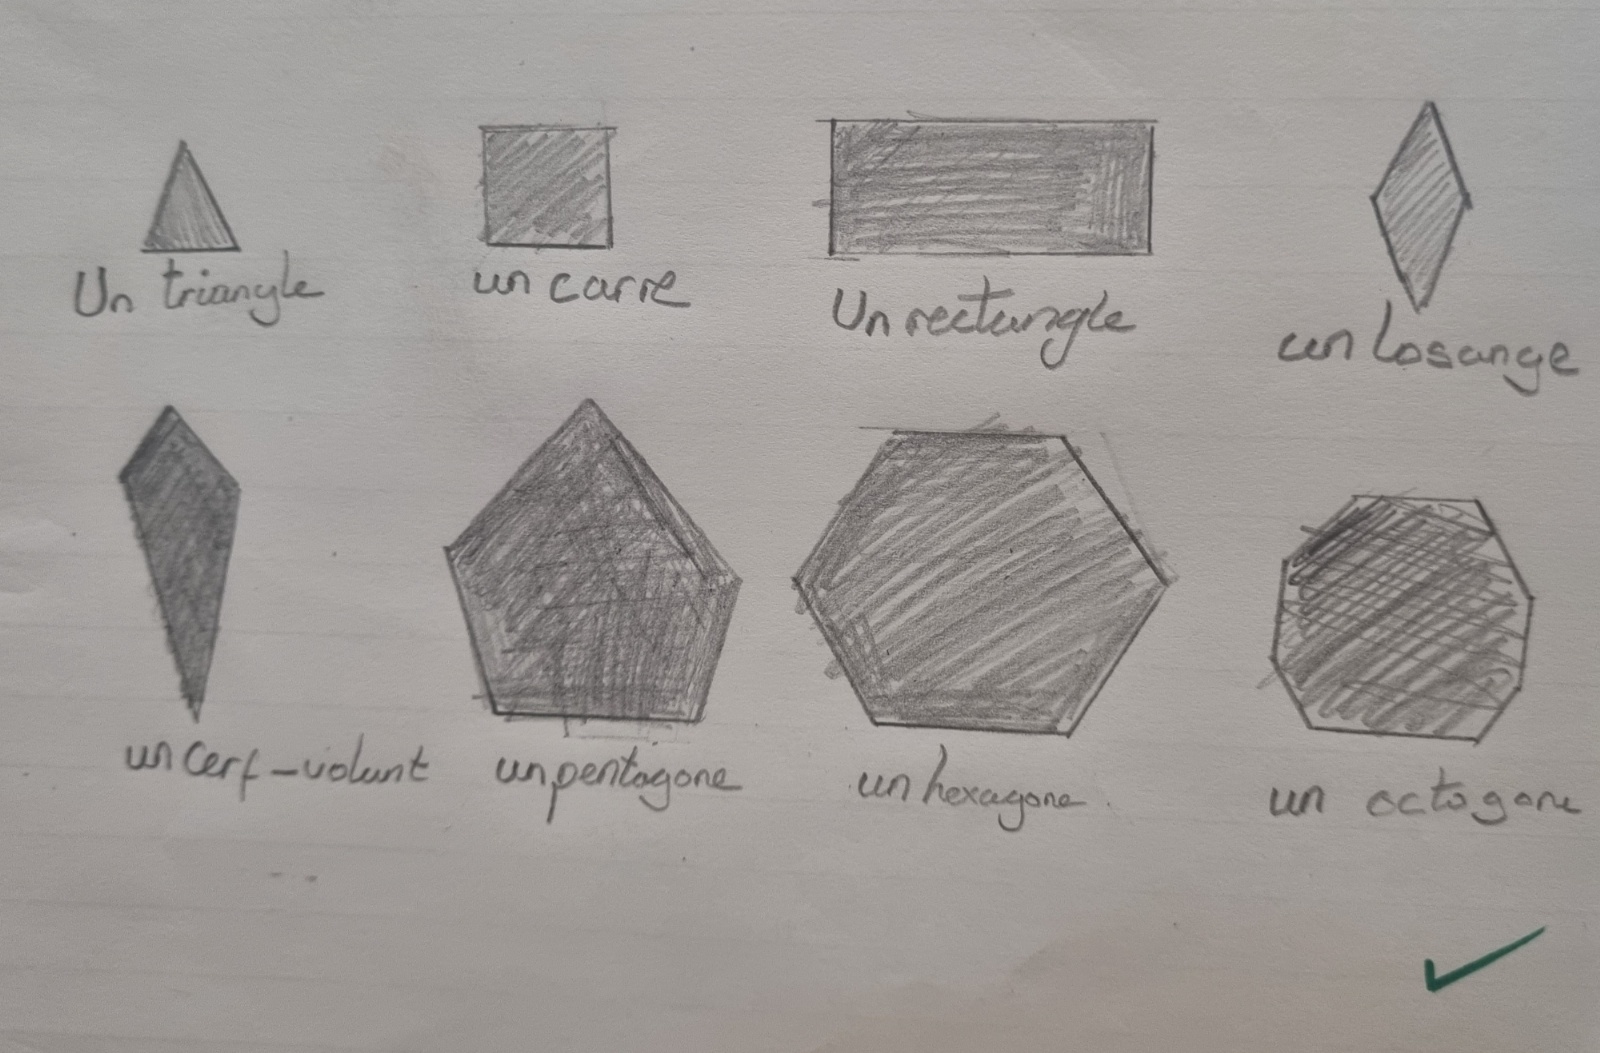 Un triangle
un carre
Un rectangle
un losange
un cerf-volant
un pentagone
un hexagone
un octogone